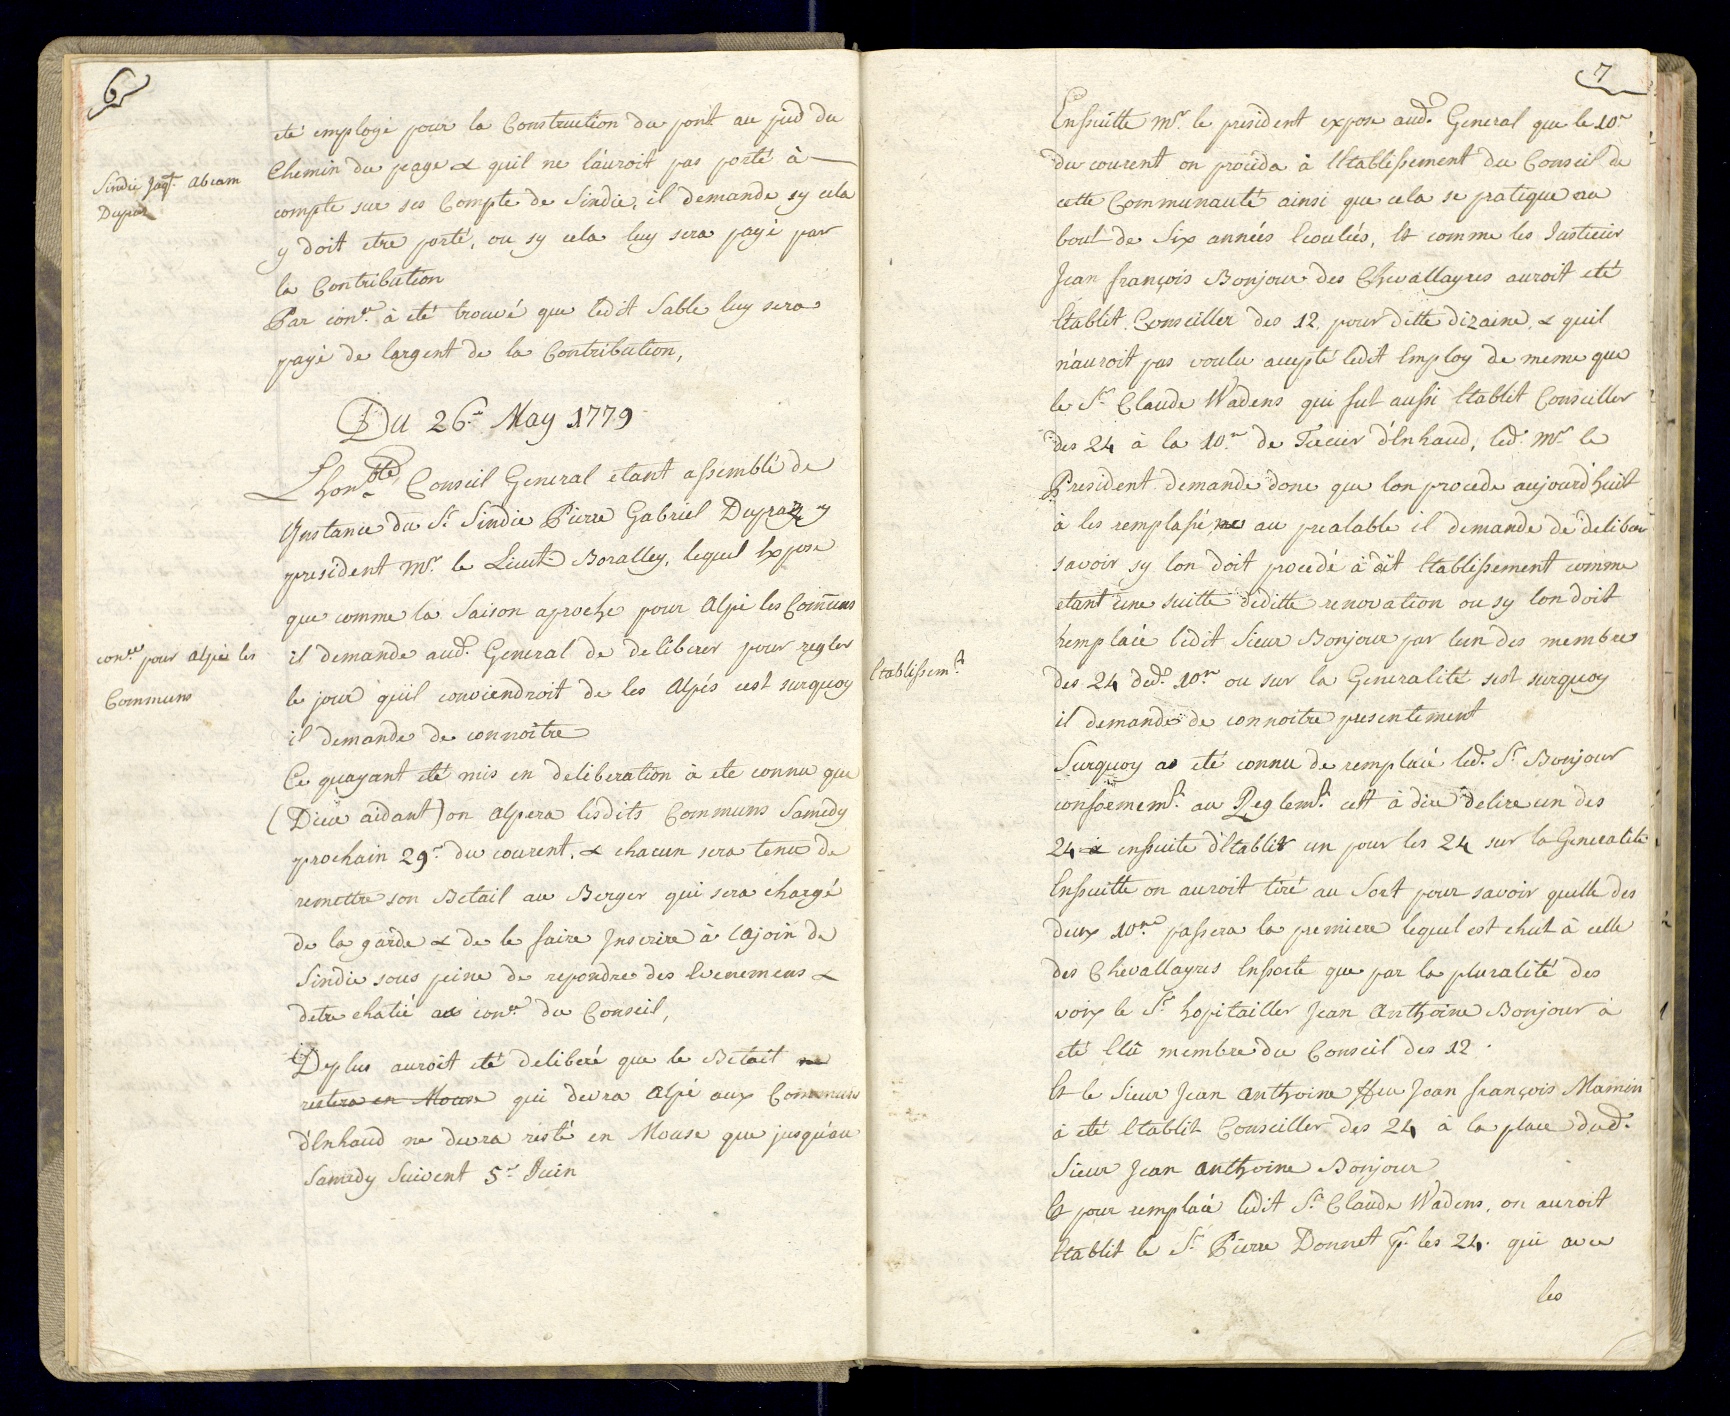 6
eté employé pour la Construction du pont au pied du
Chemin du peage & quil ne lauroit pas porté à
Sindic Jaq.s Abram
Dupraz
compte sur ses Compte de Sindic, il demande sy cela
y doit etre porté, ou sy cela luy sera payé par
la Contribution
Par con.ce à eté trouvé que ledit Sable luy sera
payé de largent de la Contribution,
Du 26.e May 1779
L'hon.ble Conseil General etant assemblé de
Instance du S.r Sindic Pierre Gabriel Dupraz y
president M.r le Lieut.t Boralley, lequel Expose
que comme la Saison aproche pour Alpé les Comuns
con.ce pour alpée les
Communs
il demande aud.t General de deliberer pour regler
le jour quil conviendroit de les Alpés cest surquoy
il demande de connoitre
Ce quayant eté mis en deliberation à ete connu que
(Dieu aidant) on alpera lesdits Communs Samedy
prochain 29.e du courent, & chacun sera tenu de
remettre son Betail au Berger qui sera chargé
de la garde & de le faire Inscrire à lajoin de
Sindic sous peine de repondre des Evenemens &
detre chatié au con.ce du Conseil,
Deplus auroit eté deliberé que le Betail ne
restera en Mouse qui devra Alpé aux Communs
d'Enhaud ne devra resté en Mouse que jusqu'au
Samedy Suivent 5.e Juin
7
Enssuitte M.r le president expose aud.t General que le 10.e
du courent on proceda à l'Etablissement du Conseil de
cette Communauté ainsi que cela se pratique au
bout de Six années Ecoulées, Et comme les Justicier
Jean françois Bonjour des Chevallayres auroit eté
Etablit Conseiller des 12 pour ditte dizaine, & quil
n'auroit pas voulu accepté ledit Employ de meme que
le S.r Claude Wadens qui fut aussi Etablit Conseiller
des 24 à la 10.ne de Tercier d'Enhaud, led.t M.r le
President demande donc que lon procede aujourd'huit
à les remplassé, au prealable il demande de deliberer
savoir sy lon doit procedé à dit Etablissement comme
etant une suitte de ditte renovation ou sy lon doit
remplacé ledit Sieur Bonjour par l'un des membres
Etablissem.t
des 24 ded.te 10.ne ou sur la Generalité sest surquoy
il demande de connoitre presentement
Surquoy a eté connu de remplacé led.t S.r Bonjour
conformem.t au Reglem.t cest à dire delire un des
24 & enssuite d'Etablir un pour les 24 sur la Generalité
Enssuitte on auroit tiré au Sort pour savoir quelle des
deux 10.nes passera la premiere lequel est chut à celle
des Chevallayres Enssorte que par la pluralité des
voix le S.r hopitailler Jean Anthoine Bonjour à
eté Elû membre du Conseil des 12.
Et le Sieur Jean Anthoine ffeu Jean françois Mamin
à eté Etablit Conseiller des 24 à la place dud.t
Sieur Jean Anthoine Bonjour
Et pour remplacé ledit S.r Claude Wadens, on auroit
Etablit le S.r Pierre Donnet p.r les 24. qui avec
les